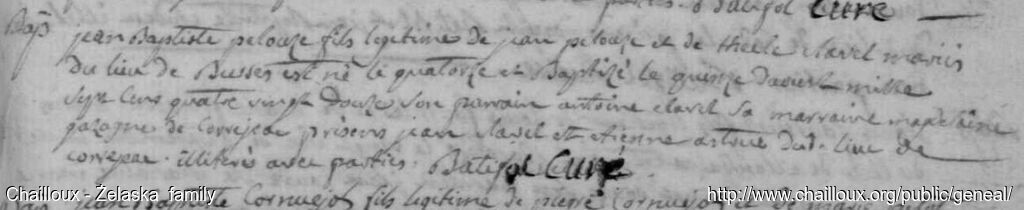 Batifol Curé
Bap. jean Baptiste pelouze fils legitime de jean pelouze et de clavel mariés
du lieu de Busses est né le quatorze et Baptizé le quinze davril mille
sept cens quatre vingt douze son parrain antoine clavel sa marraine magdelaine
gazagne de Correjac présens jean clavel et etienne astruc dud. lieu de
correjac. illiterés avec parties. Batifol Curé.
jean Baptiste Cornuejol fils legitime de pierre Cornuejol
Chailloux - Żelaska family
http://www.chailloux.org/public/geneal/